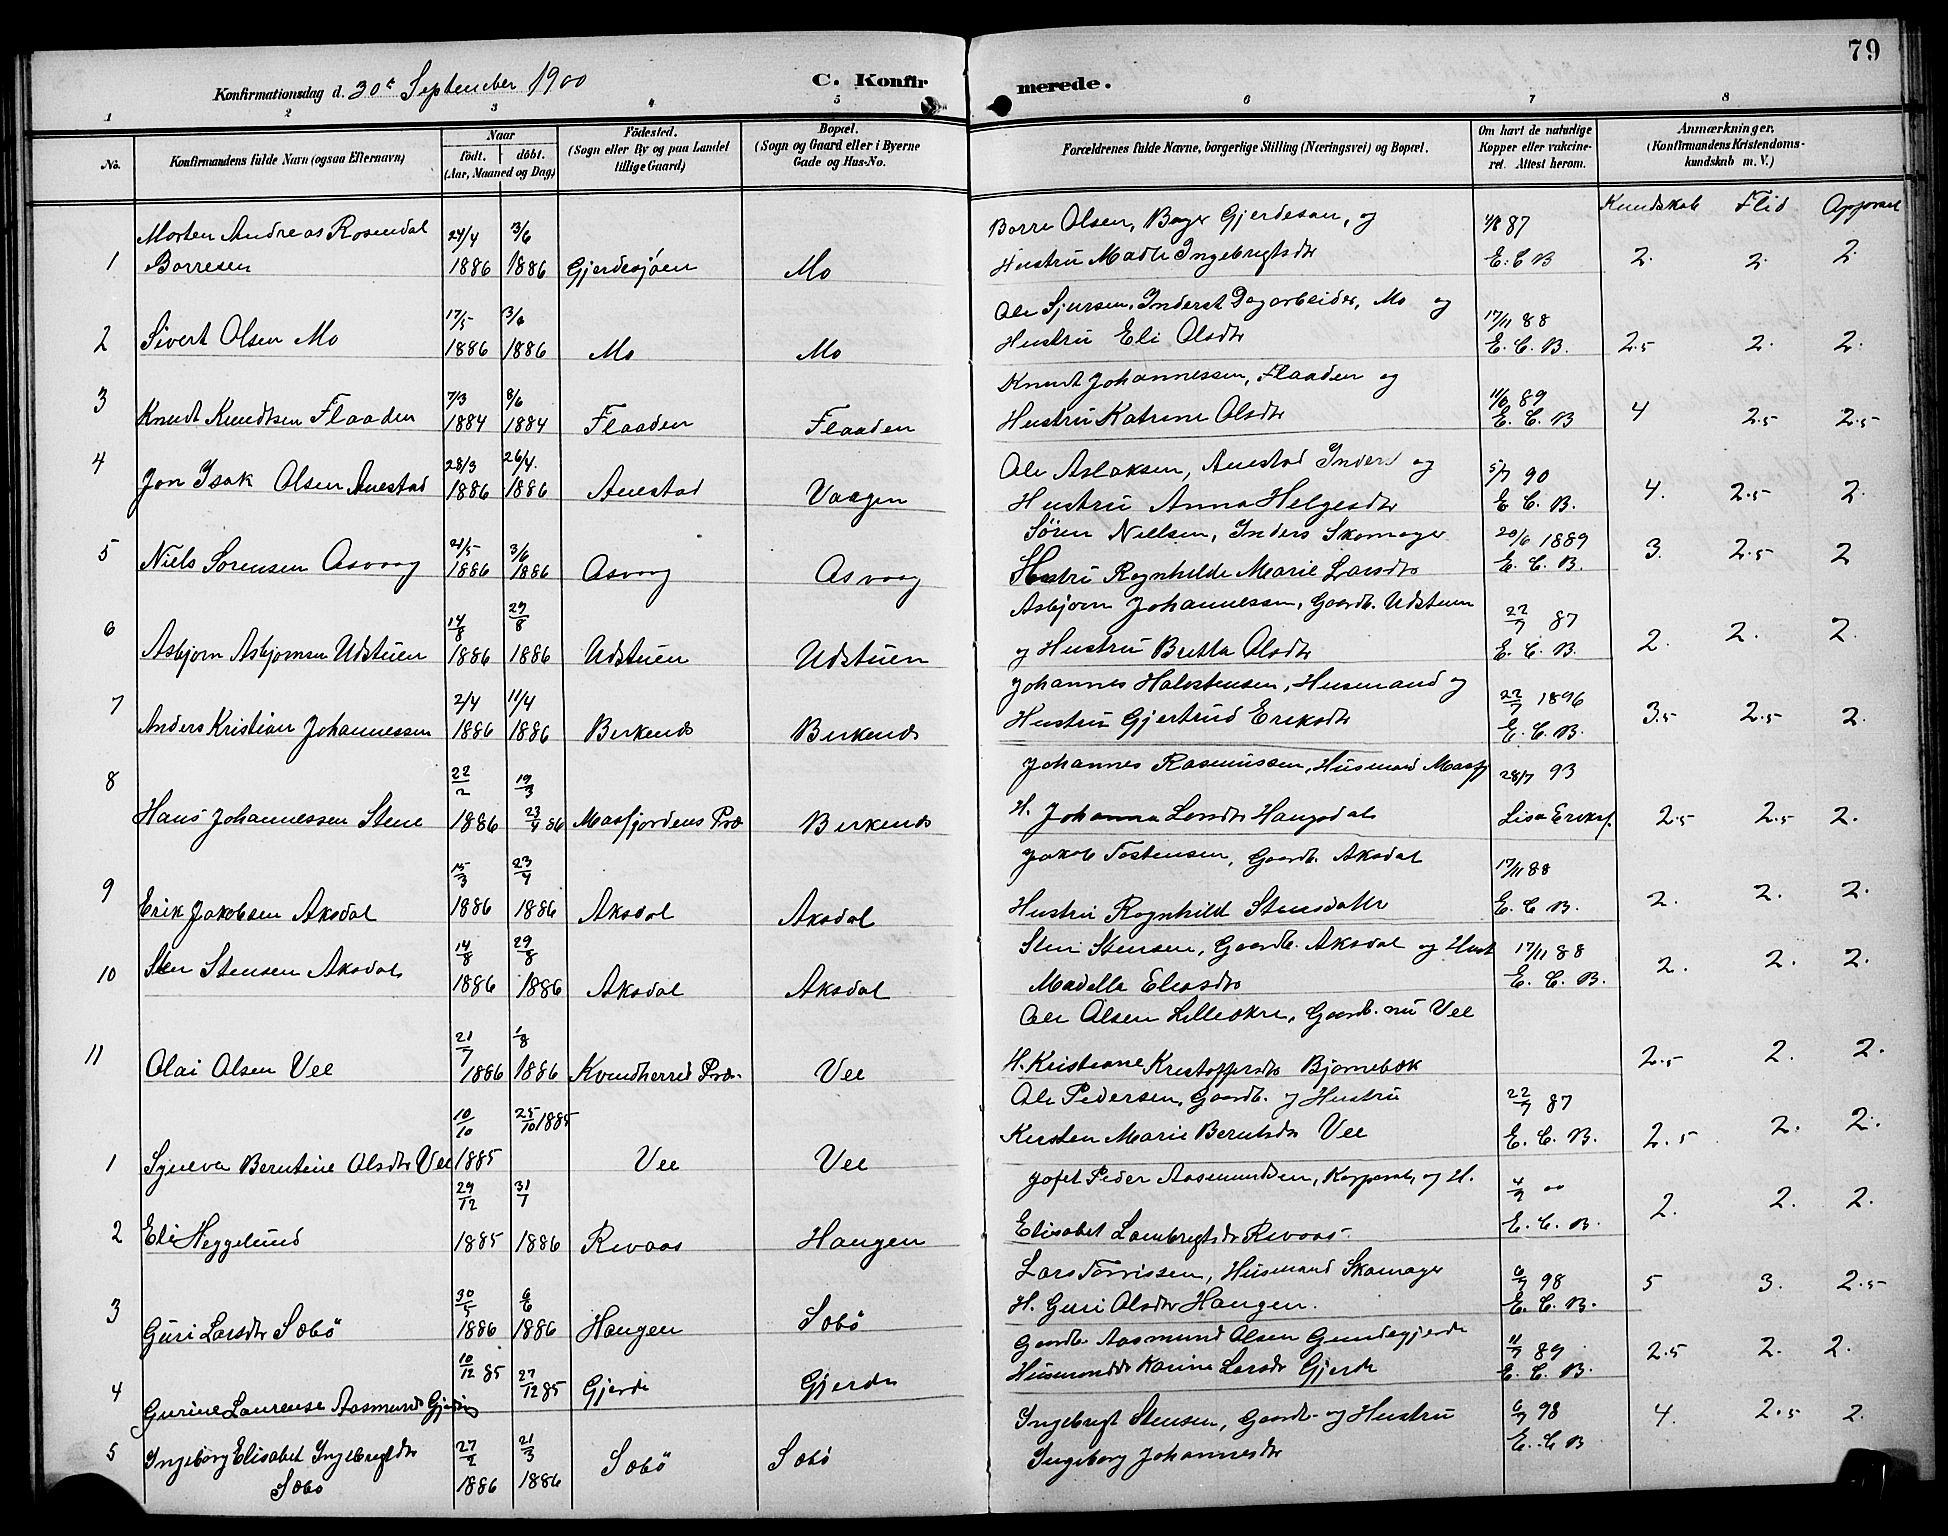 79
Konfirmationsdag d. 30te September 1900
C. Konfirmerede.
1 2 3 4 5 6 7 8
No. Konfirmandens fulde Navn (ogsaa Efternavn) Naar født. døbt. (Aar, Maaned og Dag) Födested. (Sogn eller By og paa Landet tillige Gaard) Bopæl. (Sogn og Gaard eller i Byerne Gade og Hus-No. Forældrenes fulde Navne, borgerlige Stilling (Næringsvei) og Bopæl. Om havt de naturlige Kopper eller vakcineret. Attest herom. Anmærkninger. (Konfirmandens Kristendomskundskab m. V.)
Kundskab Flid Opførsel
Morten Andreas Rosendal 24/4 13/6 Borre Olsen, Bager Gjerdesøen, og 87
1 Borresen 1886 1886 Gjerdesjøen Mo Hustru Madli Ingebrigtsdtr E. C B 2. 2. 2.
17/5 3/6 Ole Sjursen, Inderst Dagarbeider, Mo og 17/11 88
2 Sivert Olsen Mo 1886 1886 Mo Mo Hustru Eli Olsdtr E. C. B. 2.5 2. 2.
3 7/3 8/6 Knut Johannessen, Flaaden og 11/6 89
Knudt Knudtsen Flaaden 1884 1884 Flaaden Flaaden Hustru Katrine Olsdtr E. C. B 4 2.5 2.5
4 28/3 26/4. Ole Aslaksen, Auestad Inders og 5/7 90
Jon Isak Olsen Auestad 1886 1886 Auestad Vaagen Hustru Anna Helgesdtr E. C. B. 4. 2.5 2.
5 21/5 3/6 Søren Nielsen, Inders Skomager 20/6 1889
Niels Sörensen Asvaag 1886 1886 Asvaag Asvaag Hustru Ragnhilde Marie Larsdtr E. C. B. 3. 2.5 2
6 14/8 29/8 Asbjørn Johannessen, Gaardb. Udstuen 22/7 87
Asbjorn Asbjornsen Udstuen 1886 1886 Udstuen Udstuen og Hustru Britta Olsdtr E. C. B. 2. 2. 2.
7 2/4 11/4 Johannes Halvstensen, Husmand og 22/7 1896
Anders Kristian Johannessen 1886 1886 Berkenes Berkenes Hustru Gjertrud Eriksdtr E. C. B. 3.5 2.5 2.
8 22/2 19/3 Johannes Rasmussen, Husmand Masfj 28/7 93
Hans Johannessen Stene 1886 23/4 86 Masfjordens Præ Berkenes H. Johanna Larsdtr Haugsdal Lisa Erikss. 2.5 2.5 2.
9 15/3 23/4 Jakob Tostensen, Gaardb. Aksdal 17/11 88
Erik Jakobsen Aksdal 1886 1886 Aksdal Aksdal Hustru Ragnhild Stensdattr E. C B. 2. 2. 2.
10 Sten Stensen Aksdal 14/8 29/8 Sten Stensen, Gaardb. Aksdal og Hust 17/11 88
1886 1886 Aksdal Aksdal Madella Eliasdtr E. C. B. 2. 2. 2.
11 21/7 1/8 Ole Olsen Lilleøkre, Gaardb. nu Vee
Olai Olsen Vee 1886 1886 Kvindherred Præ. Vee H. Kristiane Kristoffersdtr Bjørnebæk 2.5 2. 2.
10/10 25/10 1885 Ole Pedersen, Gaardb. og Hustru 22/7 87
1 Syneva Berntine Olsdtr Vee 1885 Vee Vee Kirsten Marie Berntsdtr Vee E. C. B. 2.5 2. 2.
29/12 31/1 Jofet Peder Aasmundsen, Korporal, og H. 4/2 00
2 Eli Heggelund 1885 1886 Revaas Haugen Elisabet Lambregtsdtr Revaas E. C. B. 2. 2. 2.
30/5 6/6 Lars Torrissen, Husmand Skomager 6/7 98
3 Guri Larsdtr Søbö 1886 1886 Haugen Søbö H. Guri Olsdtr Haugen. E. C. B. 5 3. 2.5
4 10/12 85 27/12 85 Gjerde Gjerde Gaardb. Aasmund Olsen Gundegjerde 11/7 89
Gurine Laurense Aasmundsd Gjerde Husmandsdtr Karine Larsdtr Gjerde E. C. B. 2.5 2. 2.
5 Ingeborg Elisabet Ingebregtsdtr 27/2 21/3 Søbö Søbö Ingebregt Stensen, Gaardb. og Hustru 6/7 98 4. 2.5 2.
Søbö 1886 1886 Ingeborg Johannesdtr E. C B